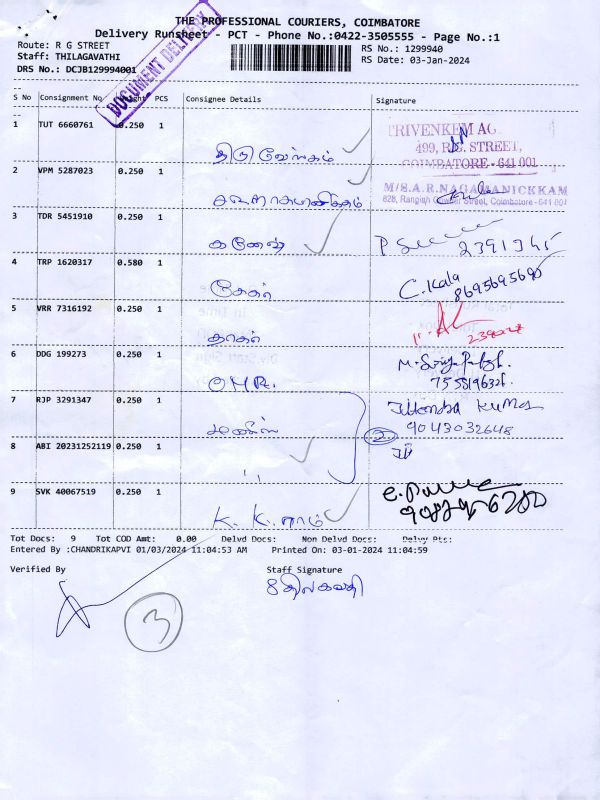 THE PROFESSIONAL COURIERS, COIMBATORE
Delivery Runsheet - PCT - Phone No.:0422-3505555 - Page No.:1
Route: R G STREET
Staff: THILAGAVATHI
DRS No.: DCJB129994001
RS No.: 1299940
RS Date: 03-Jan-2024
DOCUMENT DELIVERY
S No Consignment No PCS Consignee Details Signature
1 TUT 6660761 0.250 1 திருவேங்கம் TRIVENKEM
499, STREET,
COIMBATORE - 641 001
2 VPM 5287023 0.250 1 M/S.A.R.NAGAMANICKKAM
828, Rangish Street, Coimbatore - 641 001
3 TDR 5451910 0.250 1 கணேஷ்
4 TRP 1620317 0.580 1 சேகர் C. Kala
8695695690
5 VRR 7316192 0.250 1
6 DDG 199273 0.250 1 M.
7 RJP 3291347 0.250 1 Jitendra Kumar
9043032648
2
8 ABI 20231252119 0.250 1 ''
9 SVK 40067519 0.250 1 K. K. ராம்
Tot Docs: 9 Tot COD Amt: 0.00 Delvd Docs: Non Delvd Docs: Delvy Pts:
Entered By :CHANDRIKAPVI 01/03/2024 11:04:53 AM Printed On: 03-01-2024 11:04:59
Verified By Staff Signature
3